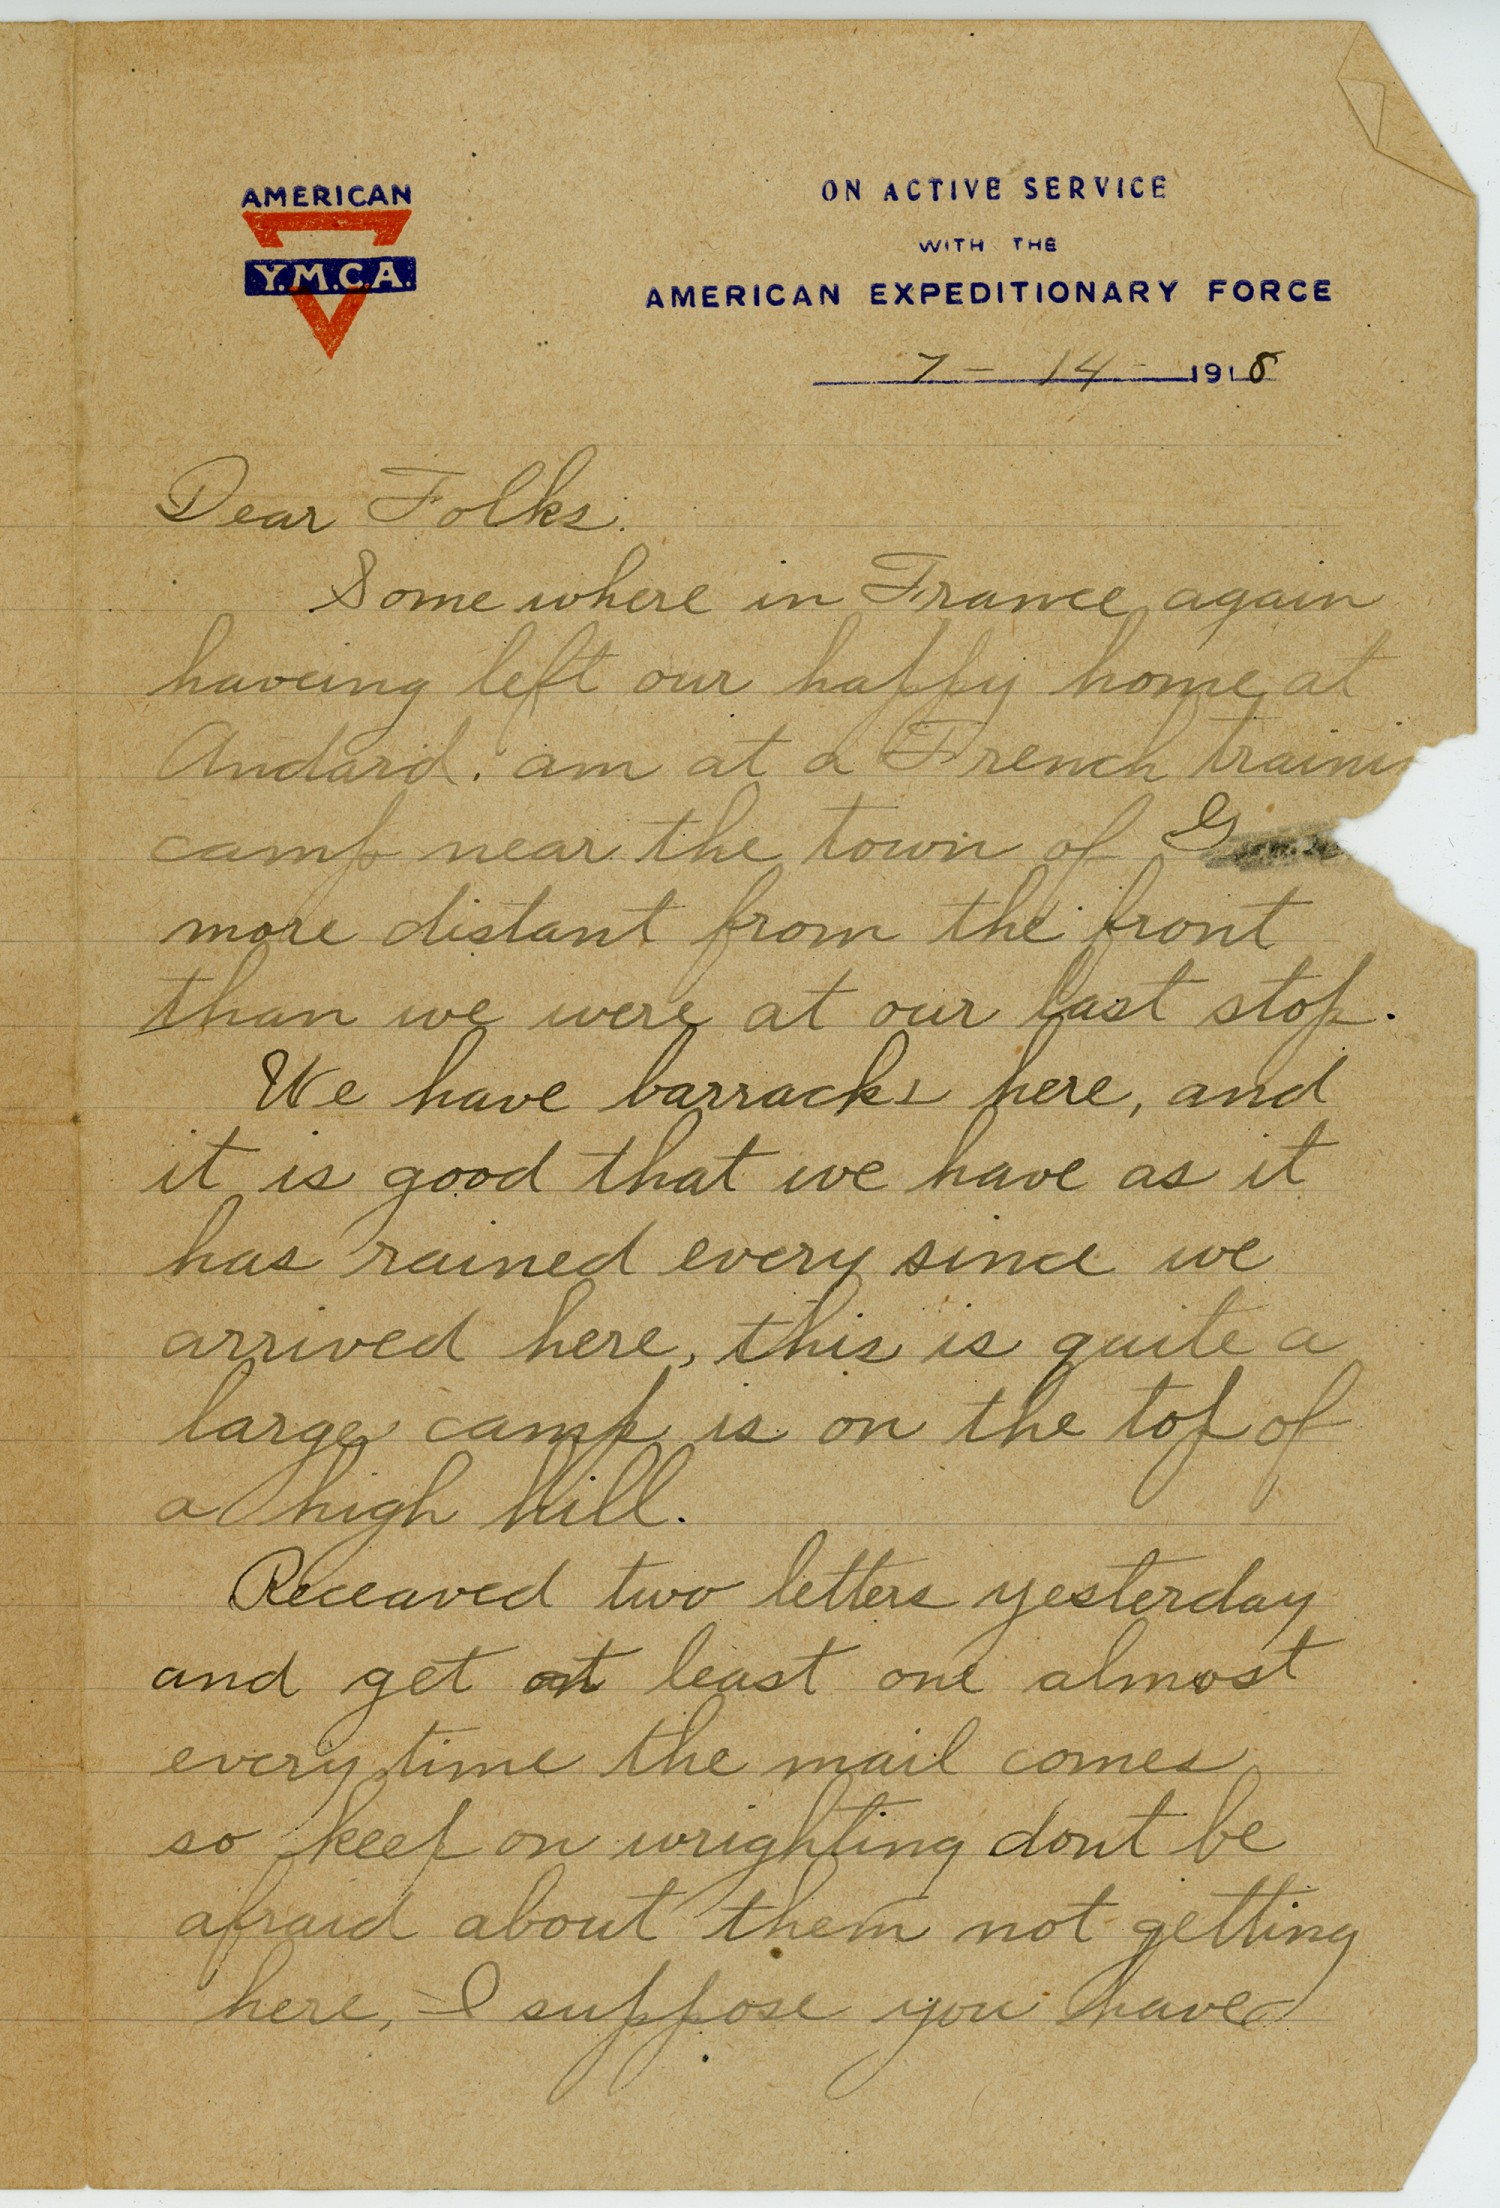 AMERICAN
Y.M.C.A.
ON ACTIVE SERVICE
WITH THE
AMERICAN EXPEDITIONARY FORCE
7 - 14 - 1918
Dear Folks.
Some where in France again
haveing left our happy home at
Andard. am at a French trainin
camp near the town of G
more distant from the front
than we were at our last stop.
We have barracks here, and
it is good that we have as it
has rained every since we
arrived here, this is quite a
large camp is on the top of
a high hill.
Receaved two letters yesterday
and get at least one almost
every time the mail comes
so keep on wrighting dont be
afraid about them not getting
here, I suppose you have